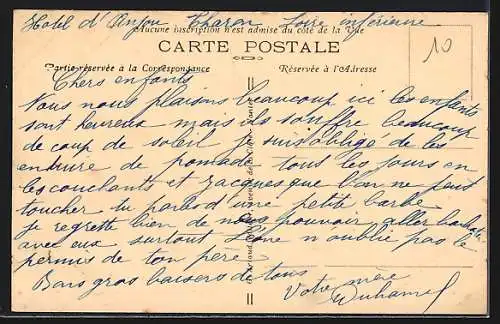 Hotel d'Anjou Tharon Loire inférieure
Aucune inscription n'est admise du côté de la Vue
CARTE POSTALE
10
Partie réservée à la Correspondance
Réservée à l'Adresse
Chers enfants
Vous nous plaisons beaucoup ici les enfants
sont heureux mais ils souffre beaucoup
de coup de soleil je suis obligé de les
enduire de pomade tous les jours en
les couchants et Jacques que l'on ne peut
toucher tu parles d'une petite barbe
Je regrette bien de nous pouvoir aller
avec eux surtout n'oublie pas le
permis de ton père
Bons gros baisers de tous
Votre mère
Duhamel